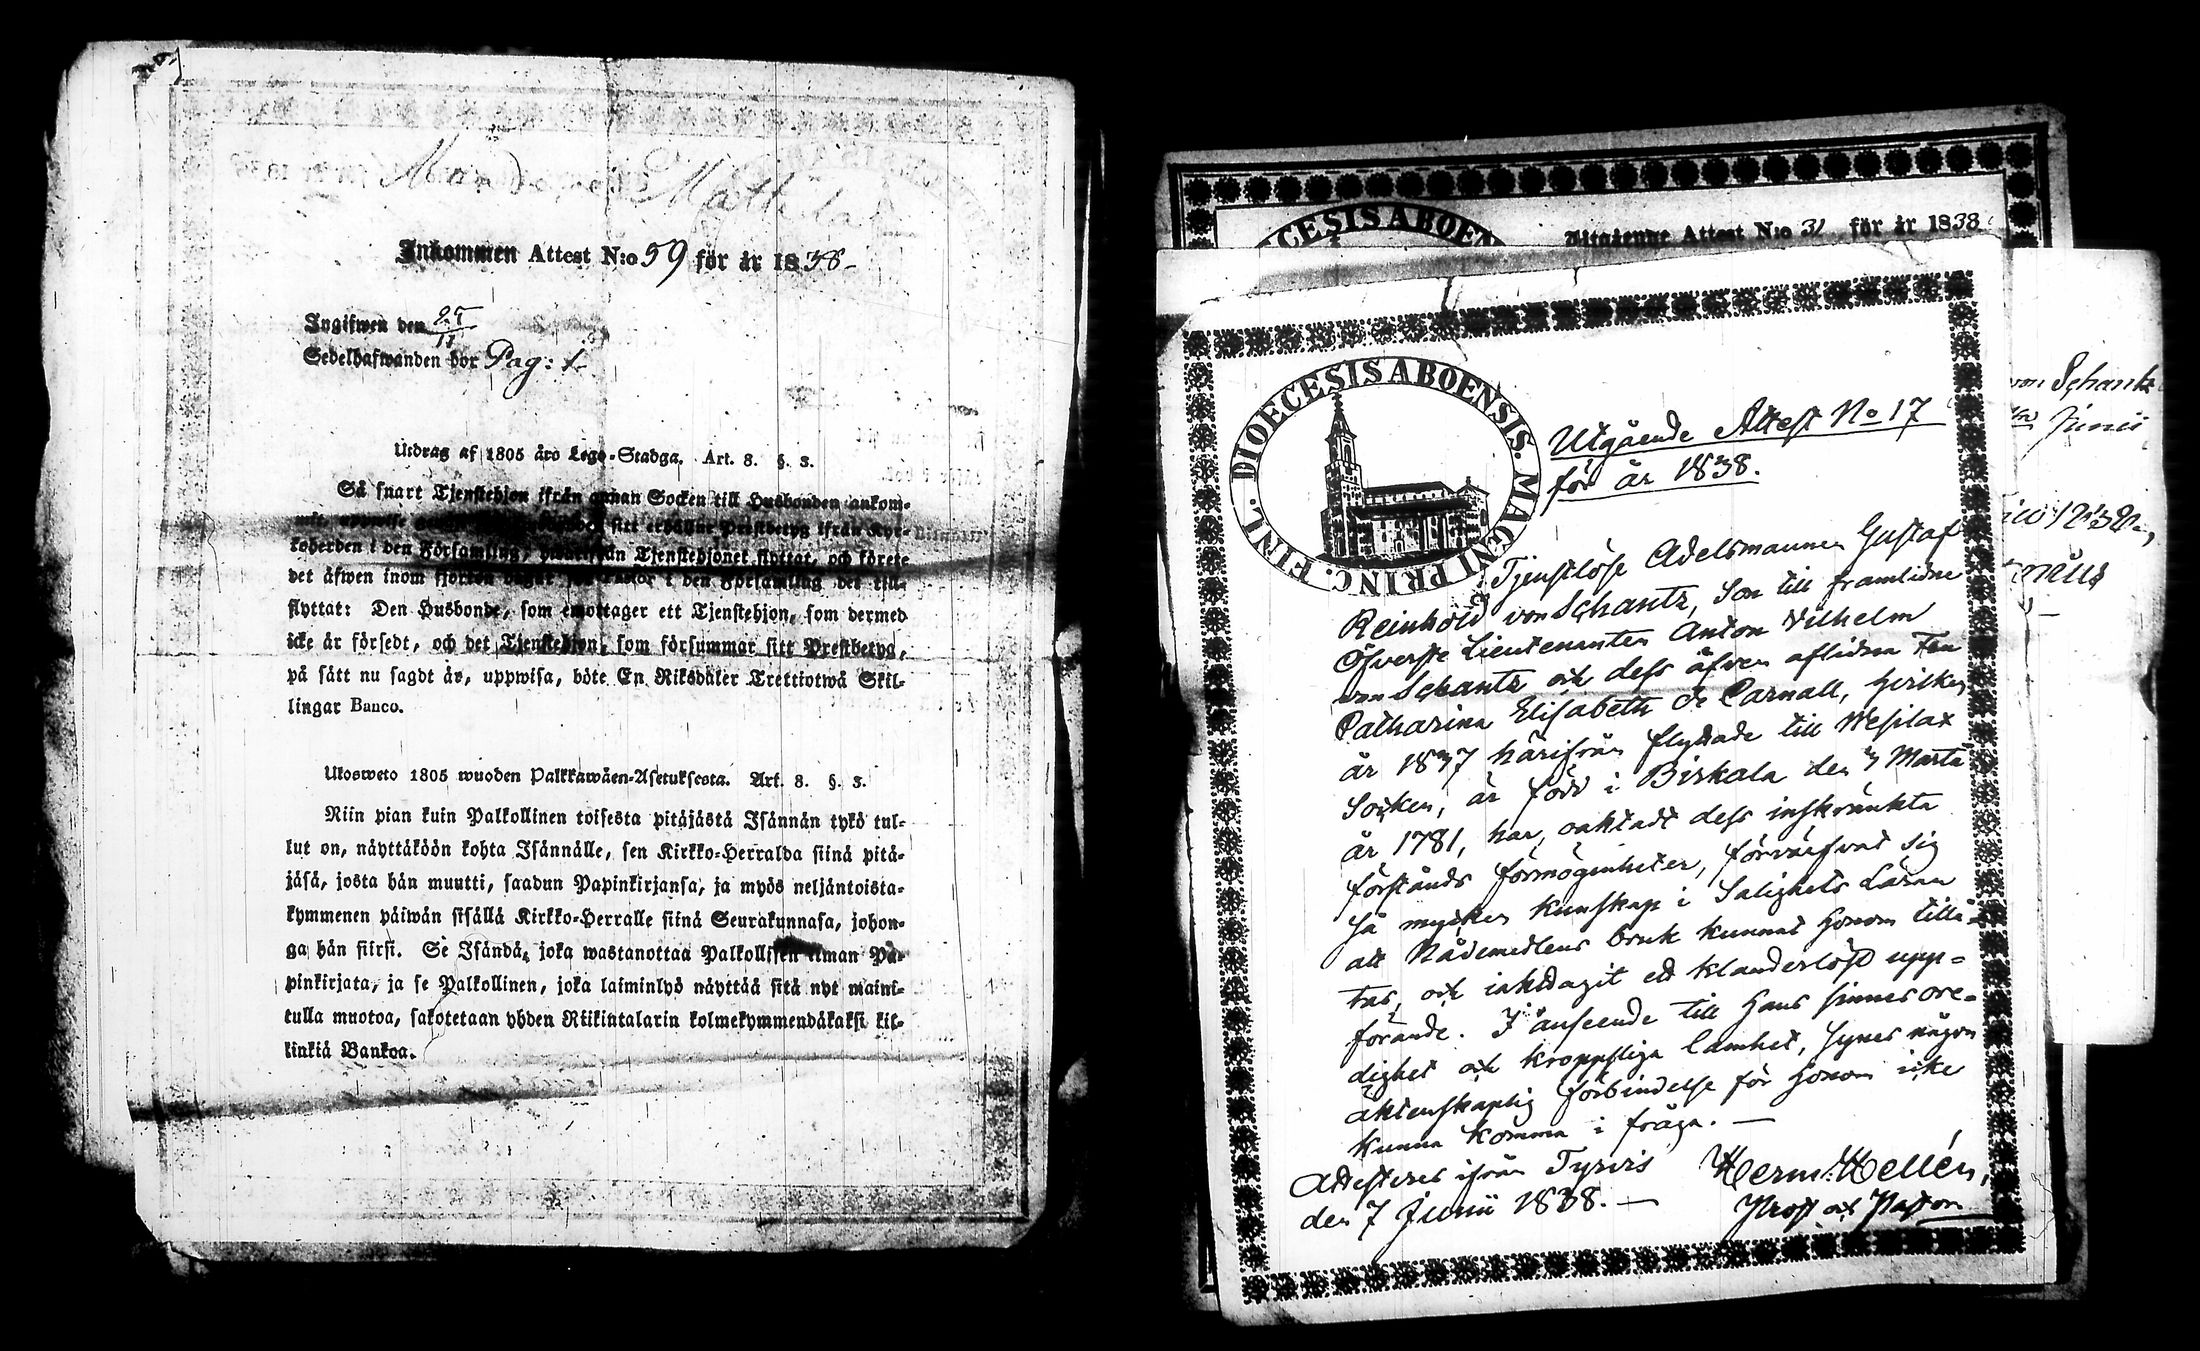 Mattila
Inkommen Attest N:o 59 för år 1838-
Ingifwen den 25/11
Sedelhafwanden bor Pag: 1.
Utdrag af 1805 års Lego-Stadga. Art. 8. §. 3.
Så snart Tjenstehjon ifrån annan Socken till Husbonden ankom-
mit, uppwise sitt erhållne Prestbetyg ifrån Kyr-
koherden i den Församling, Tjenstehjonet flyttat, och förete
det äfwen inom fjorton dagar för Pastor i den Församling det till-
flyttat: Den Husbonde, som emottager ett Tjenstehjon, som dermed
icke är försedt, och det Tjenstehjon, som försummar sitt Prestbetyg,
på sätt nu sagdt är, uppwisa, böte En Riksdaler Trettiotwå Skil-
lingar Banco.
Ulosweto 1805 wuoden Palkkawäen-Asetuksesta. Art. 8. §. 3.
Niin pian kuin Palkollinen toisesta pitäjästä Isännän tykö tul-
lut on, näyttäköön kohta Isännälle, sen Kirkko-Herralda siinä pitä-
jäsä, josta hän muutti, saadun Papinkirjansa, ja myös neljäntoista-
kymmenen päiwän sisällä Kirkko-Herralle siinä Seurakunnasa, johon-
ga hän siirsi. Se Isändä, joka wastanottaa Palkollisen ilman Pa-
pinkirjata, ja se Palkollinen, joka laiminlyö näyttää sitä nyt maini-
tulla muotoa, sakotetaan yhden Riikintalarin kolmekymmendäkaksi kil-
linkiä Bankoa.
Utgående Attest N:o 31 för år 1838.
DIOECESIS ABOENSIS. MAGNI PRINC. FINL.
Utgående Attest No 17
för år 1838.
Tjenstlöse Adelsmannen Gustaf
Reinhold von Schantz, Son till framlidne
Öfverste Lieutenanten Anton Vilhelm
von Schantz och dess äfven aflidna Fru
Catharina Elisabeth de Carnall, hvilken
år 1837 härifrån flyttade till Wesilax
Socken, är född i Birkala den 3 Martii
år 1781, har, oaktadt dess inskränkta
förstånds förmögenheter, förvärfvat sig
så mycken kunskap i Salighets Läran
att Nådemedlens bruk kunnat honom tillå-
tas, och iakttagit ett klanderlöst upp-
förande. I anseende till hans sinnes ore-
dighet och kroppsliga lamhet, synes någon
äktenskaplig förbindelse för honom icke
kunna komma i fråga. —
Attesteres ifrån Tyrvis
den 7 Junii 1838. —
Herm: Hellén,
Prost och Pastor
von Schantz
Junii